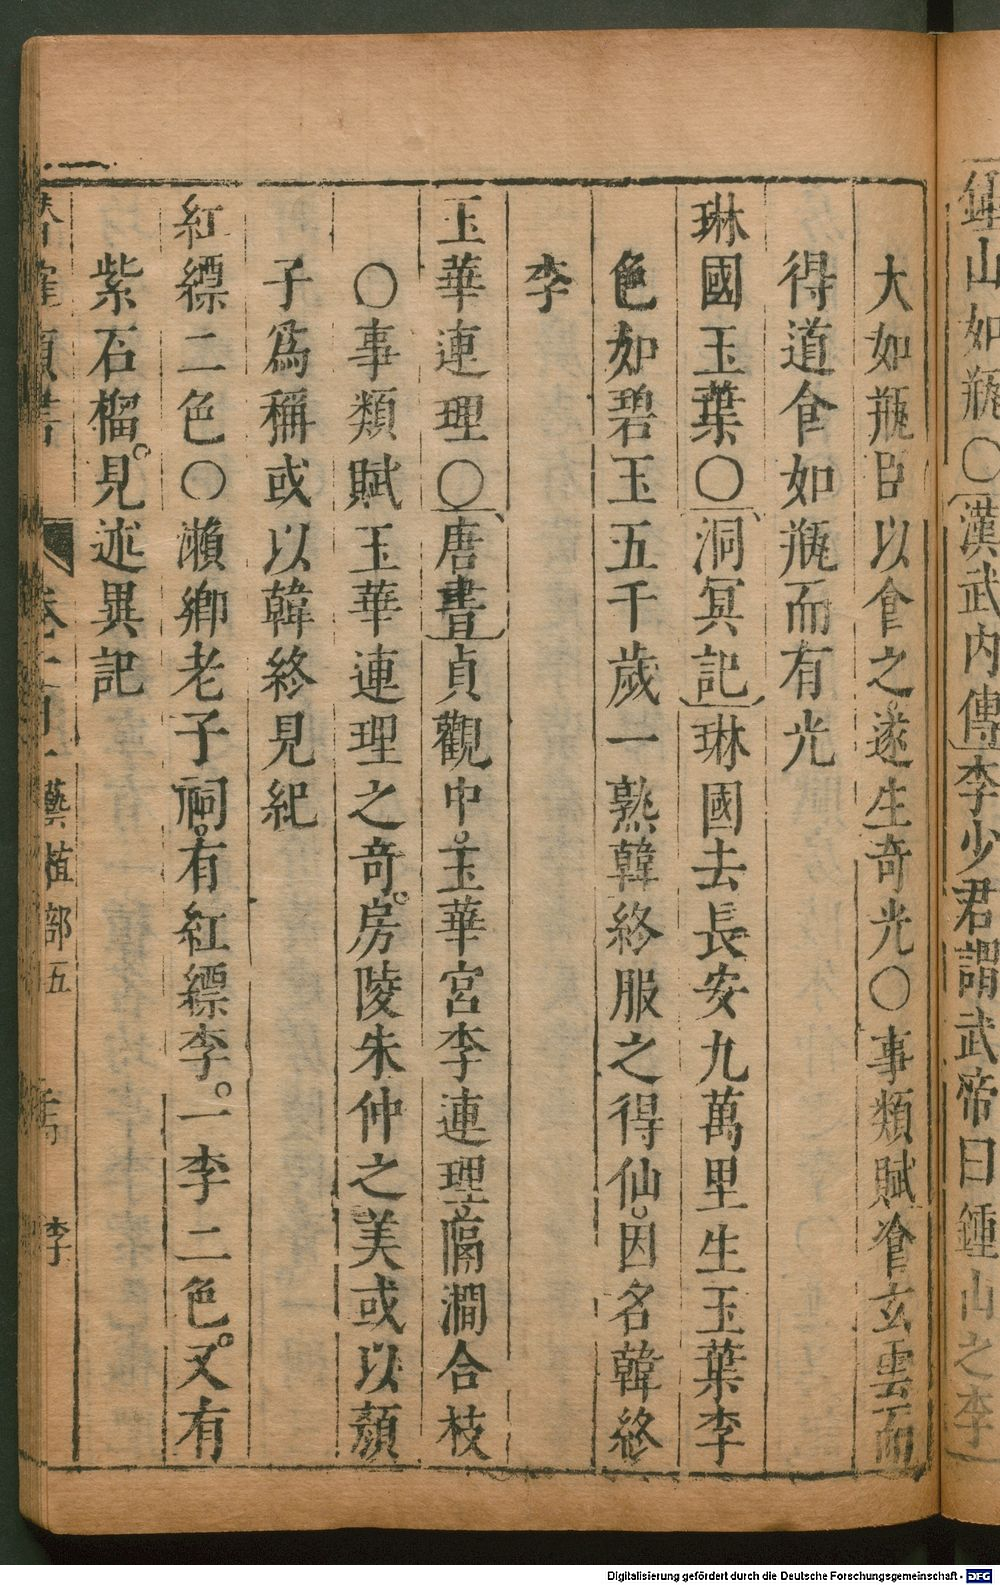 鍾山如瓶〇漢武內傳李少君謂武帝曰鍾山之李
大如瓶臣以食之遂生奇光〇事類賦飡玄雲而
得道食如瓶而有光
琳國玉葉〇洞冥記琳國去長安九萬里生玉葉李
色如碧玉五千歲一熟韓終服之得仙。因名韓終
李
玉華連理〇唐書貞觀中。玉華宮李連理。隔澗合枝
〇事類賦玉華連理之奇。房陵朱仲之美或以顏
子爲稱或以韓終見紀
紅縹二色〇瀨鄉老子祠。有紅縹李。一李二色。又有
紫石榴。見述異記
藝植部五 李
Digitalisierung gefördert durch die Deutsche Forschungsgemeinschaft - DFG